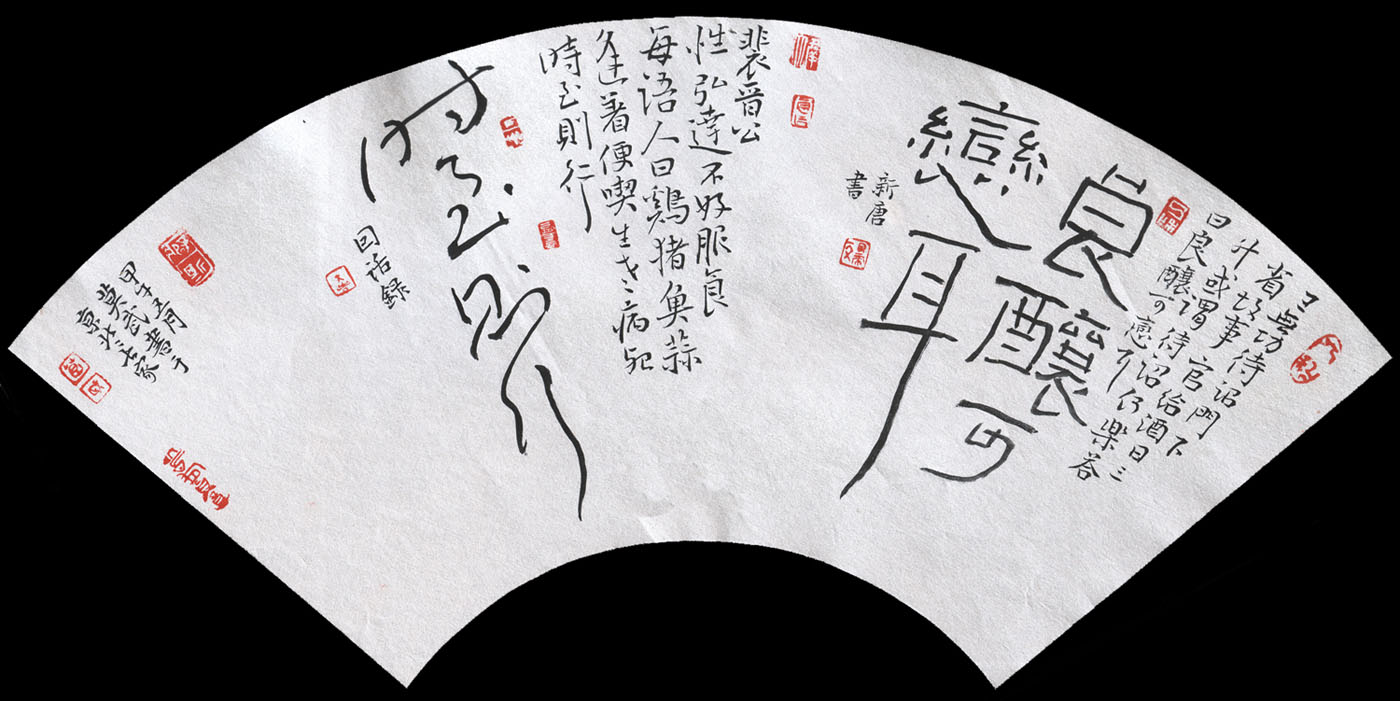 王無功侍詔門下
省故事官給酒日三
升或謂侍詔何樂答
曰良釀可戀耳
良釀可
戀耳
新唐
書
裴晉公
性弘達不好服食
每語人曰鷄猪魚蒜
逢著便喫生老病死
時至則行
時至則行
因話録
甲午五月
莫武書于